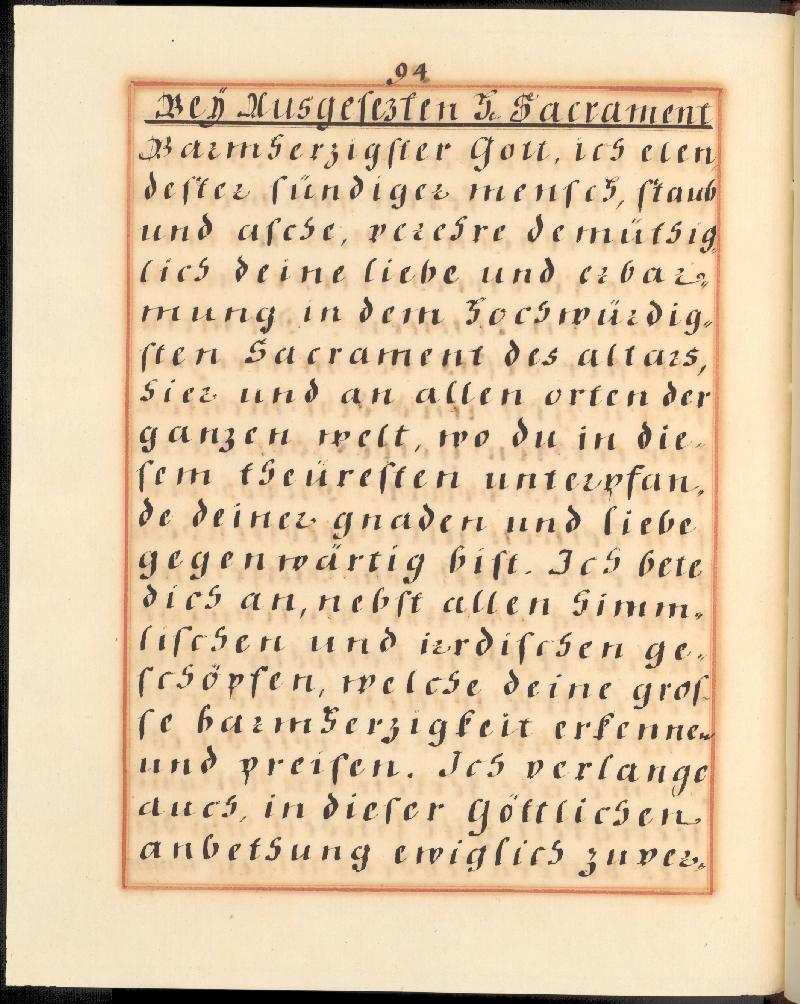 94
Beÿ Ausgesezten H. Sacrament
Barmherzigster Gott, ich elen
dester sündiger mensch, staub
und asche, verehre demüthig
lich deine liebe und erbar„
mung in dem Hochwürdig„
sten Sacrament des altars,
hier und an allen orten der
ganzen welt, wo du in die„
sem theüresten unterpfan„
de deiner gnaden und liebe
gegenwärtig bist. Ich bete
dich an, nebst allen himm„
lischen und irrdischen ge„
schöpfen, welche deine gros„
se barmherzigkeit erkennen
und preisen. Ich verlange
auch, in dieser Göttlichen
anbethung ewiglich zuver„